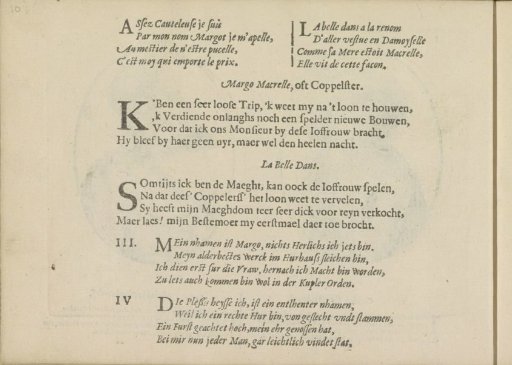 ASsez Cauteleuse je suis
Par mon nom Margot je m'apelle,
Au mestier de n'estre pucelle,
C'est moy qui emporte le prix.
LA belle dans a la renom
D'aller vestue en Damoyselle
Comme sa Mere estoit Macrelle,
Elle vit de cette facon.
Margo Macrelle, oft Coppelster.
K'Ben een seer loose Trip, 'k weet my na 't loon te houwen,
,k Verdiende onlanghs noch een spelder nieuwe Bouwen,
Voor dat ick ons Monsieur by dese Ioffrouw bracht,
Hy bleef by haer geen uyr, maer wel den heelen nacht.
La Belle Dans.
SOmtijts ick ben de Maeght, kan oock de Ioffrouw spelen,
Na dat dees' Coppelerss' het loon weet te vervelen,
Sy heeft mijn Maeghdom teer seer dick voor reyn verkocht,
Maer laes! mijn Bestemoer my eerstmael daer toe brocht.
III. MEin nhamen ist Margo, nichts Herlichs ich jets bin.
Meyn alderbestes werck im Hurhauss sleichen bin,
Ich dien erst fur die Vraw, hernach ich Macht bin worden,
Zu lets auch kommen bin wol in der Kupler Orden.
IV DIe Plessis heysse ich, ist ein entlhenter nhamen,
Weil ich ein rechte Hur bin, von geslecht undt stammen,
Ein Furst geachtet hoch, mein ehr genossen hat,
Bei mir nun jeder Man, gar leichtlich vindet stat.